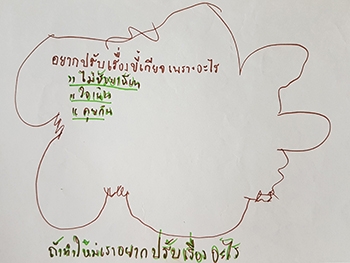 อยากปรับเรื่องขี้เกียจเพราะอะไร
ใจเย็น
คุยกัน
ถ้าทำให้เราอยากปรับเรื่องอะไร